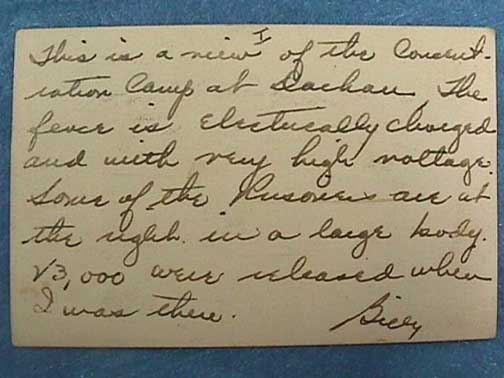 I
This is a view of the Concent-
ration Camp at Dachau. The
fence is electrically charged
and with very high voltage.
Some of the Prisoners are at
the right. in a large body.
3,000 were released when
I was there.
Billy